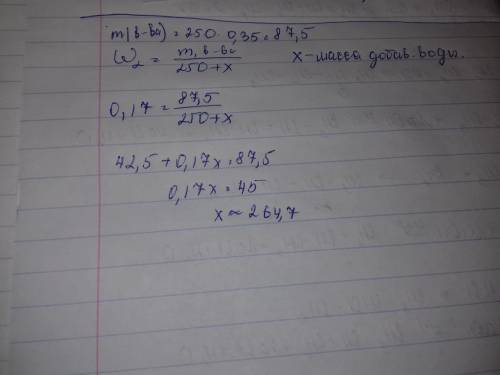 m(в-ва) = 250 · 0,35 = 87,5
ω₂ = m, в-ва / 250+x    x - масса добав. воды.
0,17 = 87,5 / 250+x
42,5 + 0,17x = 87,5
0,17x = 45
x ≈ 264,7